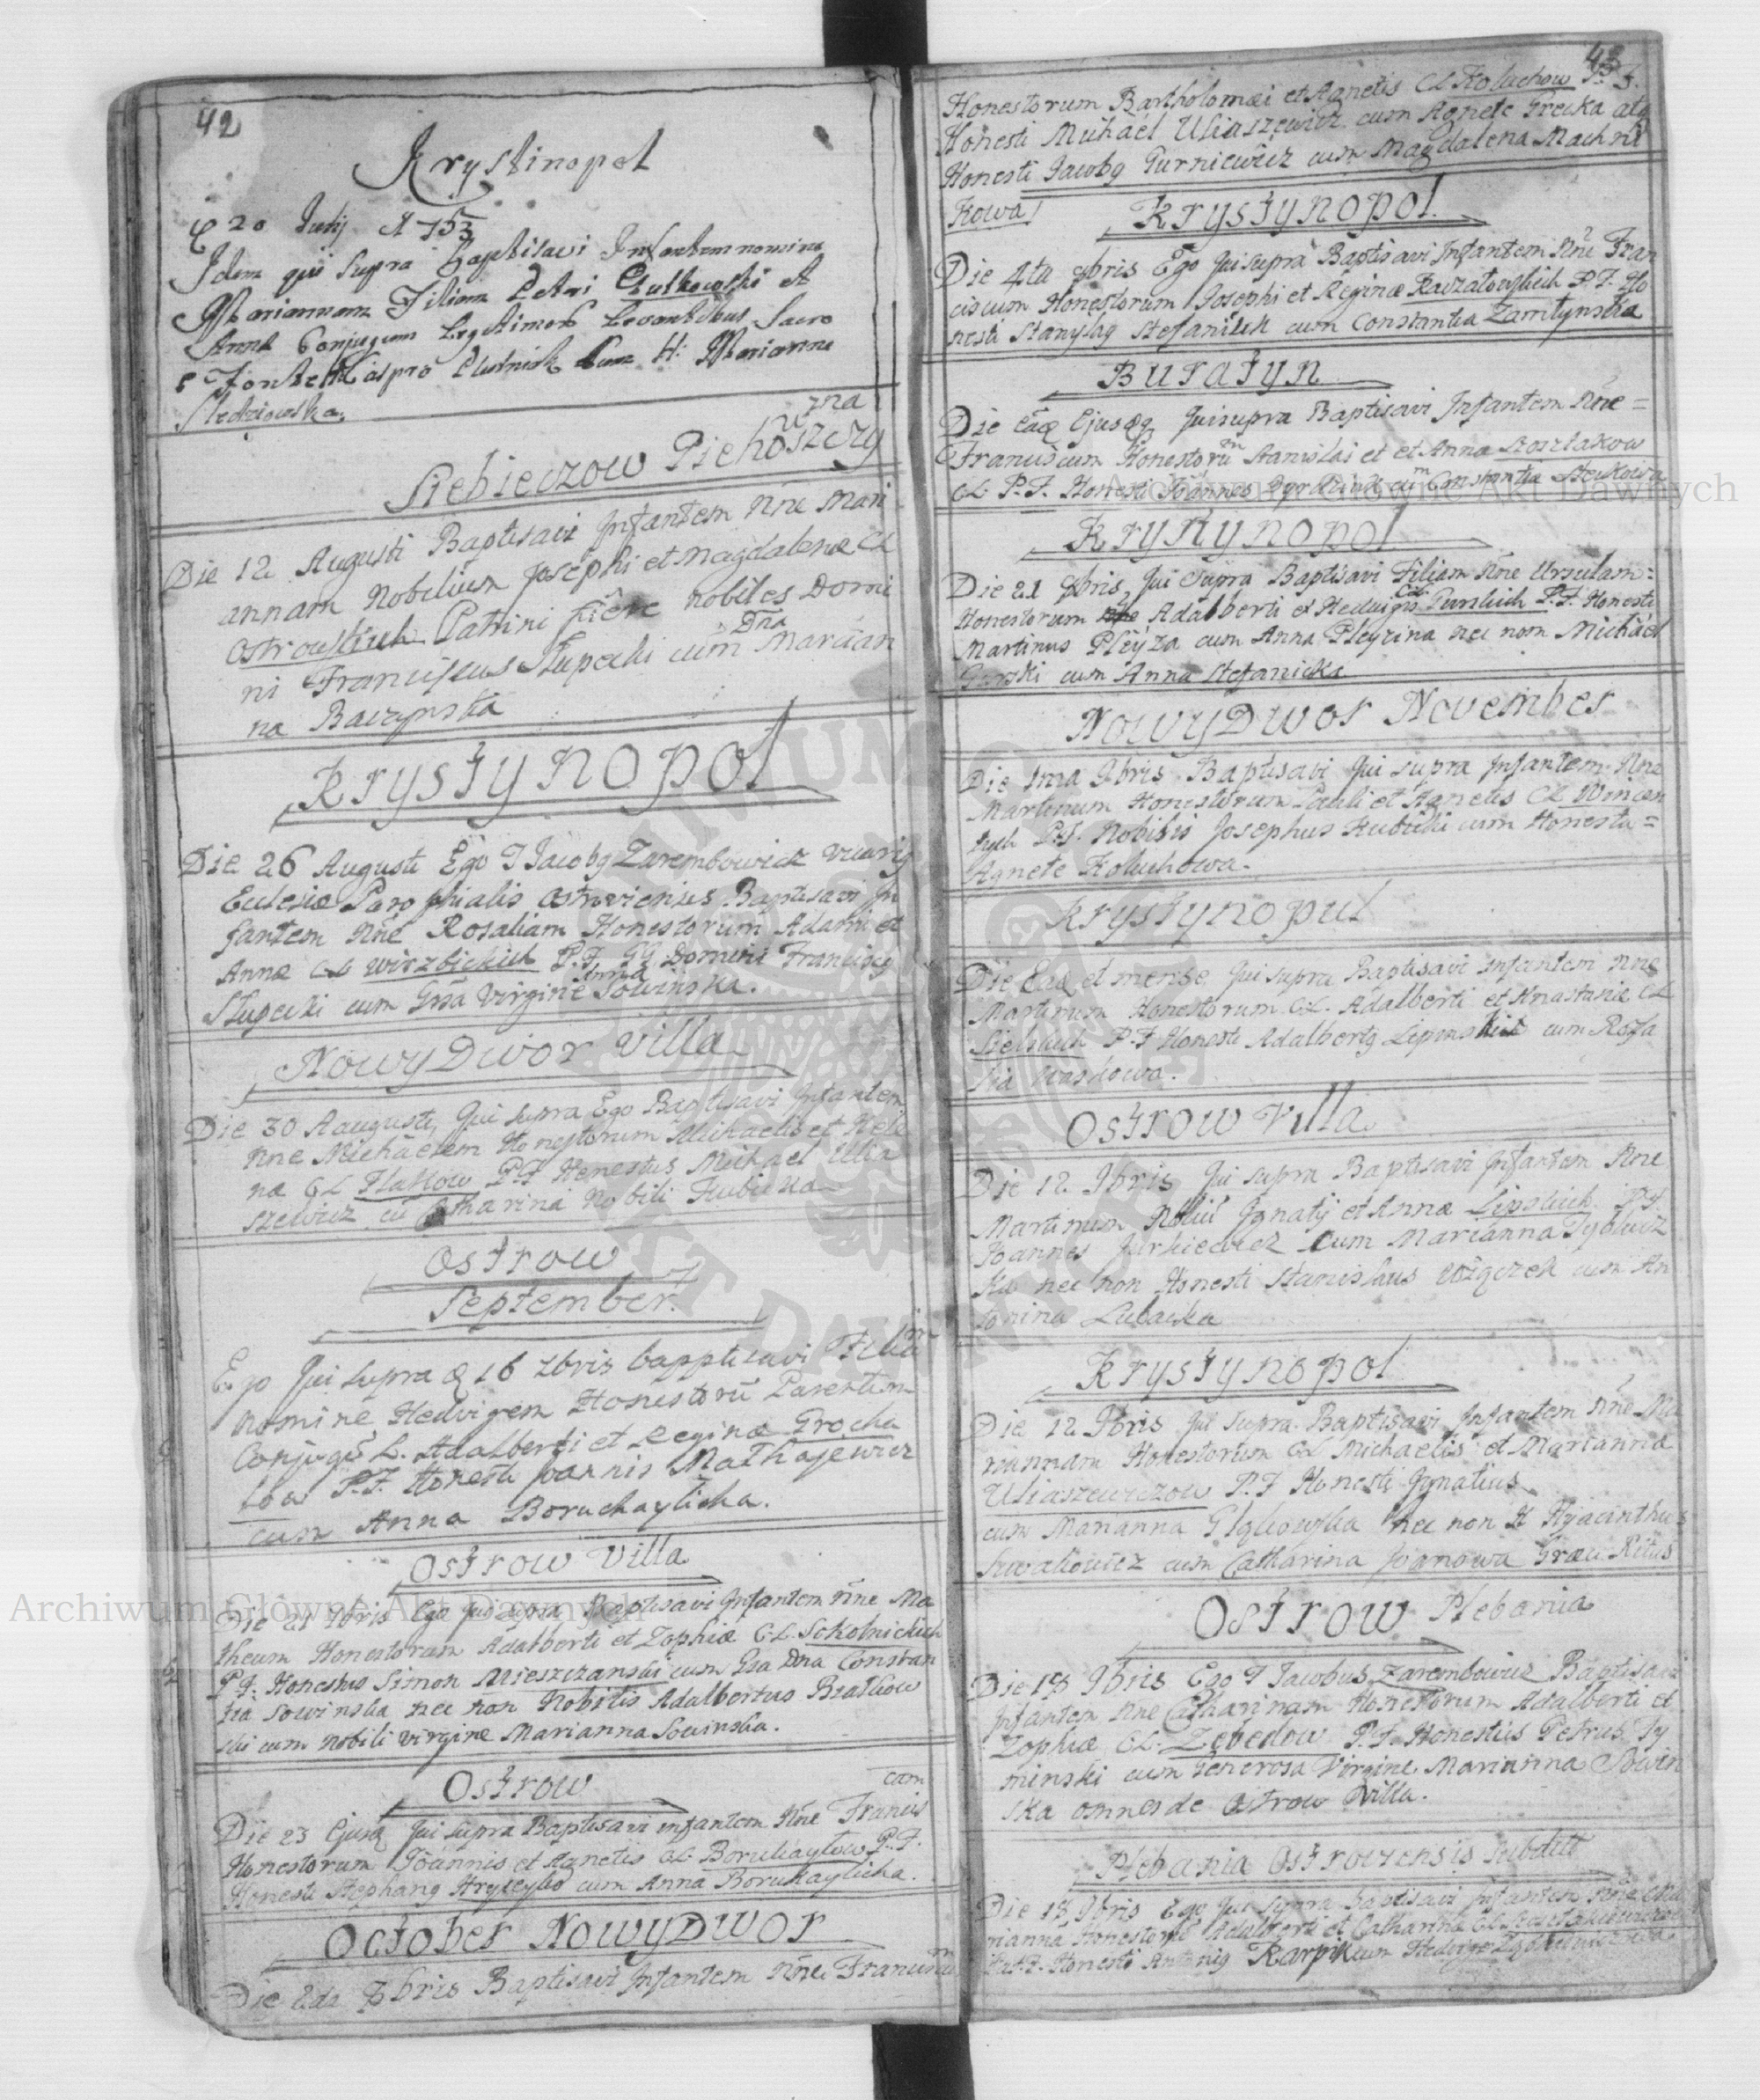 42
Krystinopol
20 Julij A 753
Idem qui supra baptisavi Infantem nomine
Mariannam Filiam Petri et
Anna Conjugum Legitimor Levantibus Sacro
Fonte Caspro cum H: Marianna

zna
Siebieczow Piehoszczy
Die 12 Augusti Baptisavi Infantem Nne Mari
annam Nobilium Josephi et Magdalenæ CL
Ostrowskich Patrini fuere nobiles Domi
ni Franciscus Słupecki cum Dna Marcian
na Baczynska
Krystynopol
Die 26 Augusti Ego J Jacobg Zarembowicz Vicarig
Eclesiæ Parophialis Ostroviensis Baptisavi In
fantem Nne Rosaliam Honestorum Adami et
Annæ CL Wirzbickich P.F. GG Domini Franciscg
Słupecki cum Gsa Virgine Anna Sowinska.
Nowy Dwor Villa
Die 30 Aaugusti, Qui supra Ego Baptisavi Infantem
Nne Michaelem Honestorum Michaelis et Hele
næ CL P.F Honestus Michael Ulia
szewicz cu Catharina Nobili Kubicka
Ostrow
September.
Ego Qui supra 16 7bris bapptisavi Filia
nomine Hedvigem Honestoru Parentum
Conjugu L. Adalberti et Reginæ Grocho
low P.F. Honesti Joannis Mathajewicz
cum Anna Boruchaylicha.
Ostrow Villa
Die 21 7bris Ego Qui supra Baptisavi Infantem Nne Ma
theum Honestorum Adalberti et Zophiæ C.L. Sokolnickich
P.F. Honestus Simon Mieszczanski cum Gsa Dna Constan
tia Sowinska nec non Nobilis Adalbertus Bratkow
ski cum Nobili Virgine Marianna Sowinska.
Ostrow
cum
Die 23 Ejusq Qui supra Baptisavi infantem Nne Francis
Honestorum Joannis et Agnetis CL Boruhaylow P.F.
Honesti Stephang Hryceylo cum Anna Boruhaylicha.
October Nowy Dwor
Die 2da 8bris Baptisavi Infantem Nne Franciscu
43
Honestorum Bartholomæi et Agnetis CL Koluchow P. F.
Honesti Michael Uliaszewicz cum Agnete Grecka atq
Honesti Jacobg Gurniewicz cum Magdalena Machni
kowa
Krystynopol.
Die 4ta 8bris Ego Qui supra Baptisavi Infantem Nne Fran
ciscum Honestorum Josephi et Reginæ P.F. Ho
nesti Stanyslag Stefaniuk cum Constantia
Buratyn
Die Eaq Ejusqg Qui supra Baptisavi Infantem Nne =
Franciscum Honestorum Stanislai et et Annæ
CL P.F. Honesti Joannes cum Constantia
Krystynopol
Die 21 8bris, Qui supra Baptisavi Filiam Nne Ursulam=
Honestorum Adalberti et Hedvigis CL P.F. Honesti
Martinus Pleyza cum Anna Pleyzina nec non Michael
Gorski cum Anna Stefanicka
Nowy Dwor November
Die 1ma 9bris Baptisavi Qui supra Infantem Nne
Martinum Honestorum Pauli et Agnetis CL Wincen
tych P.F. Nobilis Josephus Kubicki cum Honesta =
Agnete Koluchowa.
Krystynopul
Die Eaq et mense Qui supra Baptisavi infantem Nne
Martinum Honestorum C.L. Adalberti et Anastasiæ CL
Sielskich P.F Honesti Adalbertg Lipinski cum Roza
lia
Ostrow Villa
Die 12 9bris Qui supra Baptisavi Infantem Nne
Martinum Nobiu Ignatij et Annæ Lipskich P.F
Joannes Jurkiewicz cum Marianna
ka nec non Honesti Stanislaus cum An
tonina Lubacka
Krystynopol
Die 12 9bris Qui supra Baptisavi Infantem Nne Ma
riannam Honestorum CL Michaelis et Marianna
Uliaszewiczow P.F Honesti Ignatius
cum Marianna nec non H Hyacinthus
cum Catharina Joanowa Græci Ritus
Ostrow Plebania
Die 18 9bris Ego J Jacobus Zarembowicz Baptisavi
Infantem Nne Catharinam Honestorum Adalberti et
Zophiæ C.L. Zebedow P.F. Honestus Petrus Ty
minski cum Generosa Virgine Marianna Sowin
ska omnes de Ostrow Villa.
Plebania Ostrowzensis subditi
Die 18 9bris Ego Qui supra baptisavi Infantem Nne Ma
rianna Honestoru Adalberti et Catharinæ CL
P.F. Honesti Antonig Karpik cum Hedvige
Archiwum Główne Akt Dawnych
Archiwum Główne Akt Dawnych
ARCHIWUM GŁÓWNE AKT DAWNYCH